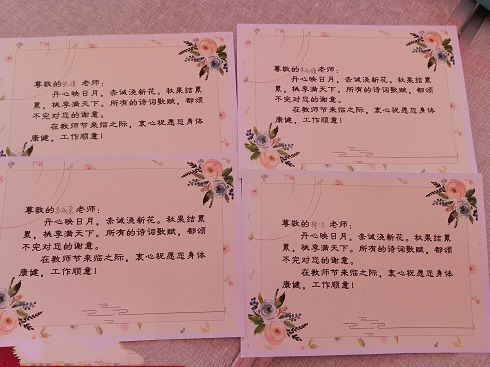 尊敬的 老师：
丹心映日月，赤诚浇新花。秋果结累
累，桃李满天下。所有的诗词歌赋，都颂
不完对您的谢意。
在教师节来临之际，衷心祝愿您身体
康健，工作顺意！
尊敬的 老师：
丹心映日月，赤诚浇新花。秋果结累
累，桃李满天下。所有的诗词歌赋，都颂
不完对您的谢意。
在教师节来临之际，衷心祝愿您身体
康健，工作顺意！
尊敬的 老师：
丹心映日月，赤诚浇新花。秋果结累
累，桃李满天下。所有的诗词歌赋，都颂
不完对您的谢意。
在教师节来临之际，衷心祝愿您身体
康健，工作顺意！
尊敬的 老师：
丹心映日月，赤诚浇新花。秋果结累
累，桃李满天下。所有的诗词歌赋，都颂
不完对您的谢意。
在教师节来临之际，衷心祝愿您身体
康健，工作顺意！